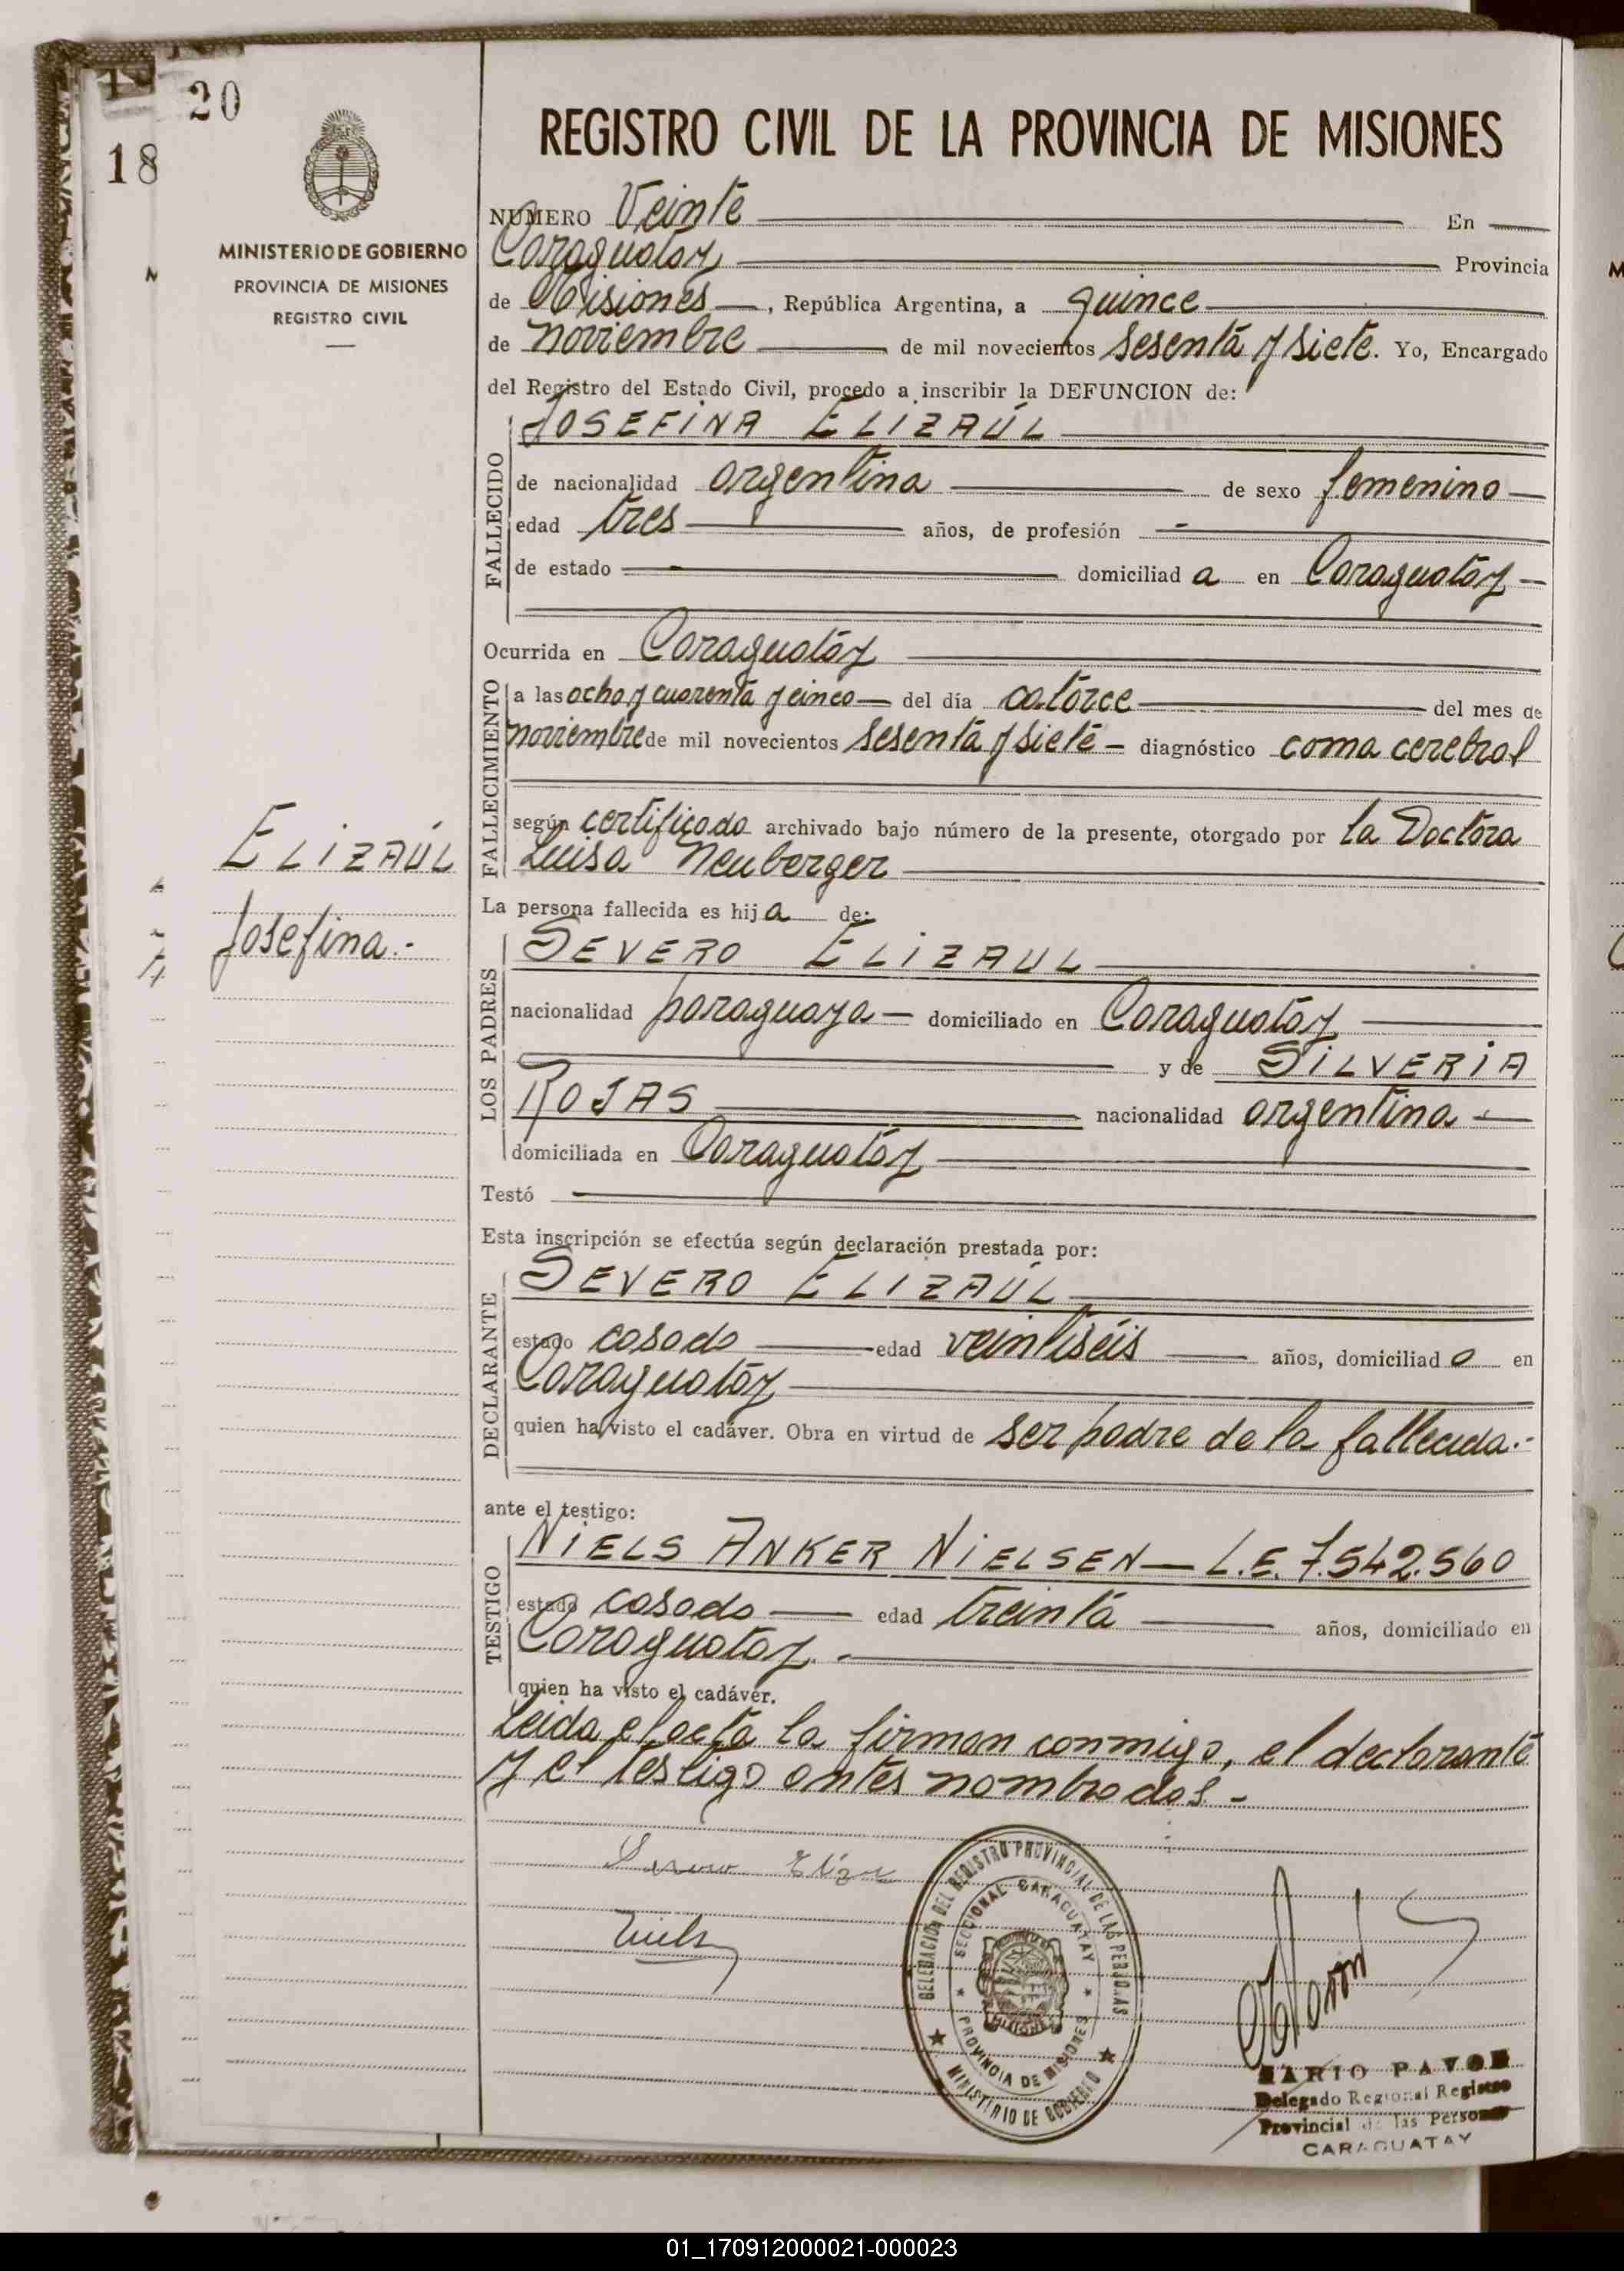 20
18
MINISTERIO DE GOBIERNO
PROVINCIA DE MISIONES
REGISTRO CIVIL
ELIZAÚL
Josefina.-
REGISTRO CIVIL DE LA PROVINCIA DE MISIONES
NUMERO Veinte En
Caraguatáy Provincia
de Misiones, República Argentina, a quince
de noviembre de mil novecientos sesenta y siete. Yo, Encargado
del Registro del Estado Civil, procedo a inscribir la DEFUNCION de:
JOSEFINA ELIZAÚL
FALLECIDO
de nacionalidad argentina de sexo femenino
edad tres años, de profesión -
de estado - domiciliad a en Caraguatáy
Ocurrida en Caraguatáy
FALLECIMIENTO
a las ocho y cuarenta y cinco del día catorce del mes de
noviembre de mil novecientos sesenta y siete - diagnóstico coma cerebral
según certificado archivado bajo número de la presente, otorgado por la Doctora
Luisa Neuberger
La persona fallecida es hij a de:
LOS PADRES
SEVERO ELIZAUL
nacionalidad paraguaya domiciliado en Caraguatáy
y de SILVERIA
ROJAS nacionalidad argentina
domiciliada en Caraguatáy
Testó
Esta inscripción se efectúa según declaración prestada por:
DECLARANTE
SEVERO ELIZAÚL
estado casado edad veintiséis años, domiciliad o en
Caraguatáy
quien ha visto el cadáver. Obra en virtud de ser padre de la fallecida.-
ante el testigo:
TESTIGO
NIELS ANKER NIELSEN - L.E. 7.542.560
estado casado edad treinta años, domiciliado en
Caraguatay. -
quien ha visto el cadáver.
Leida el acta la firman conmigo, el declarante
y el testigo antes nombrados. -
DELEGACION DEL REGISTRO PROVINCIAL DE LAS PERSONAS
SECCIONAL CARAGUATAY
MISIONES
PROVINCIA DE MISIONES
MINISTERIO DE GOBIERNO
MARIO PAVON
Delegado Regional Registro
Provincial de las Personas
CARAGUATAY
01_170912000021-000023